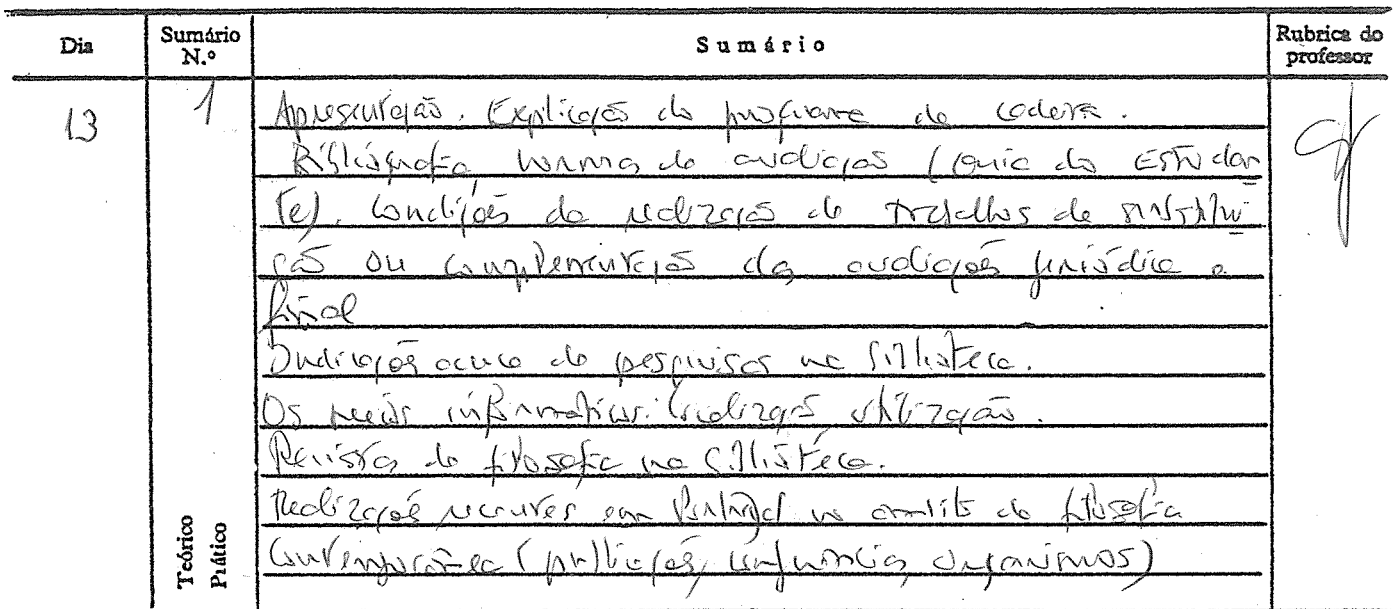 Dia
Sumário N.º
Sumário
Rubrica do professor
13
1
Apresentação. Explicação do programa da cadeira.
Bibliografia normas de avaliação (Guia do Estudan
te). Condições de realização de trabalhos de substitui
ção ou complementação da avaliação periódica e
final
Indicações acerca de pesquisas na biblioteca.
Os meios informáticos: localização utilização.
Revistas de filosofia na biblioteca.
Realizações recentes em Portugal no âmbito da filosofia
contemporânea (publicações, conferências, organismos)
Teórico
Prático